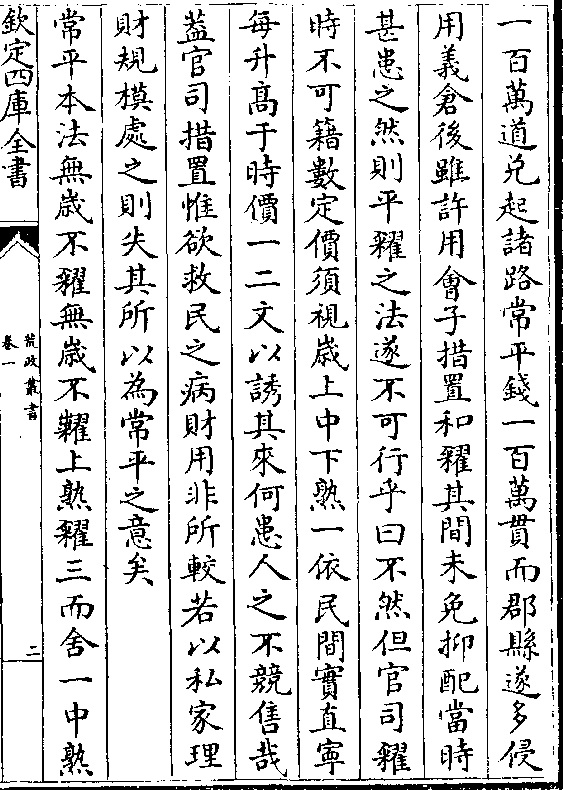 一百萬道兌起諸路常平錢一百萬貫而郡縣遂多侵
用義倉後雖許用會子措置和糴其間未免抑配當時
甚患之然則平糴之法遂不可行乎曰不然但官司糴
時不可籍數定價須視歲上中下熟一依民間實直寕
每升髙于時價一二文以誘其來何患人之不競售哉
葢官司措置惟欲救民之病財用非所較若以私家理
財規模處之則失其所以為常平之意矣
常平本法無歲不糴無歲不糶上熟糴三而舍一中熟
欽定四庫全書
荒政叢書
卷一
二